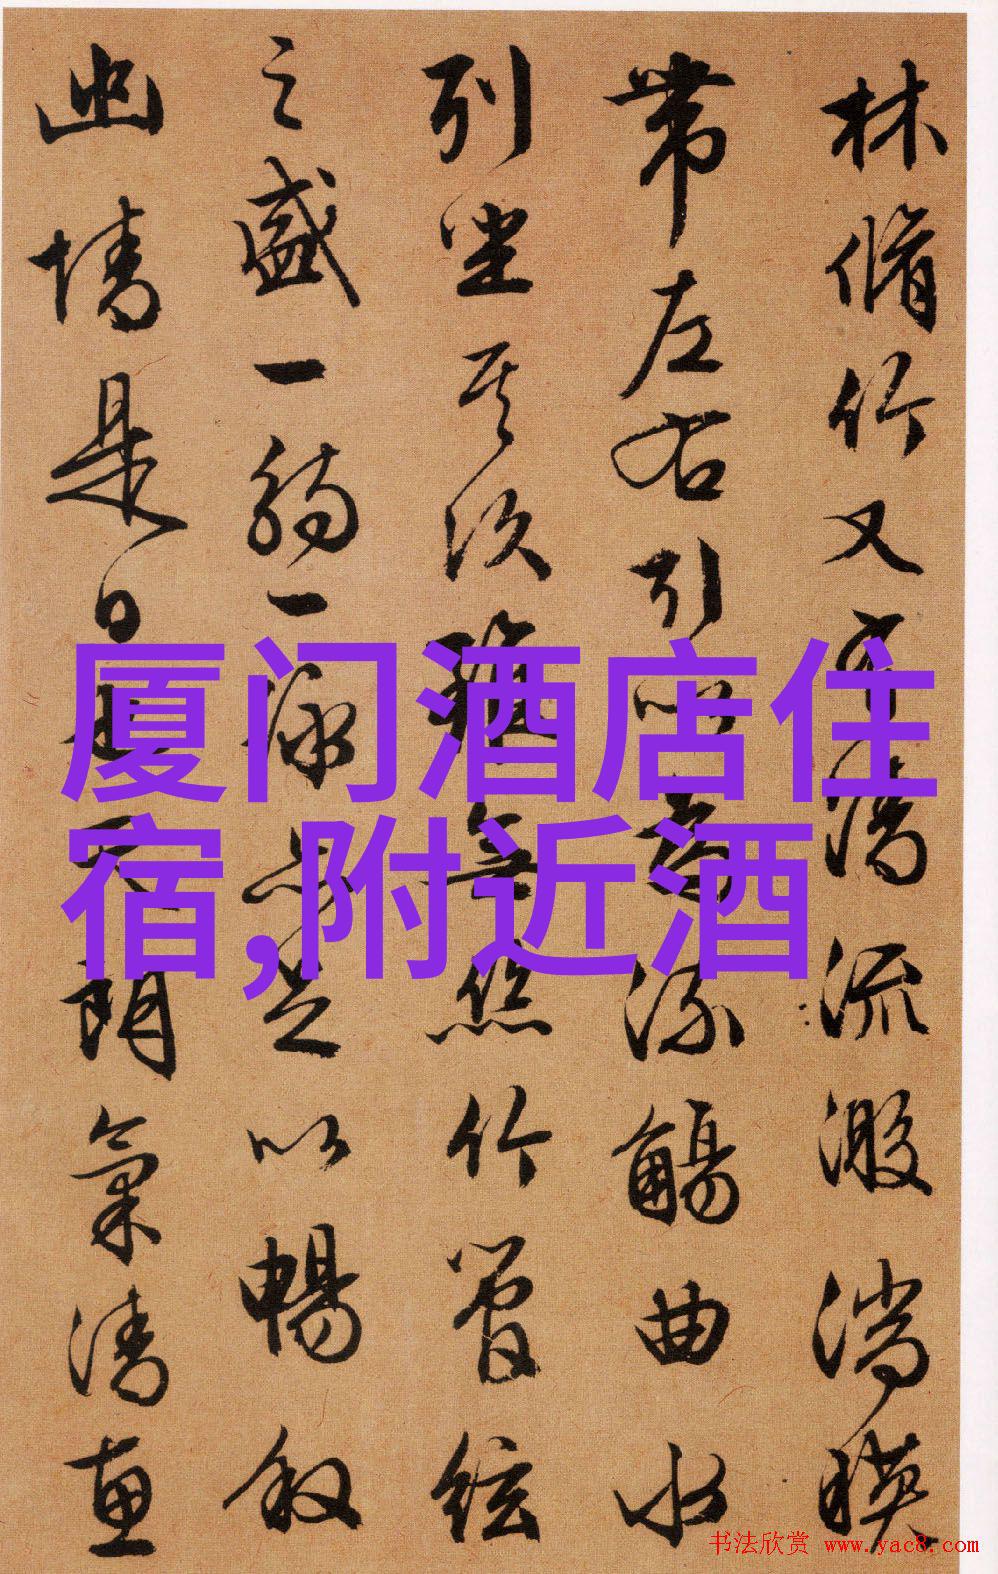 林脩竹又有清流激湍映
帶左右引以為流觴曲水
列坐其次雖無絲竹管絃
之盛一觴一詠亦足以暢敘
幽情是日也天朗氣清惠
厦门酒店住
宿,附近酒
书法欣赏 www.yac8.com